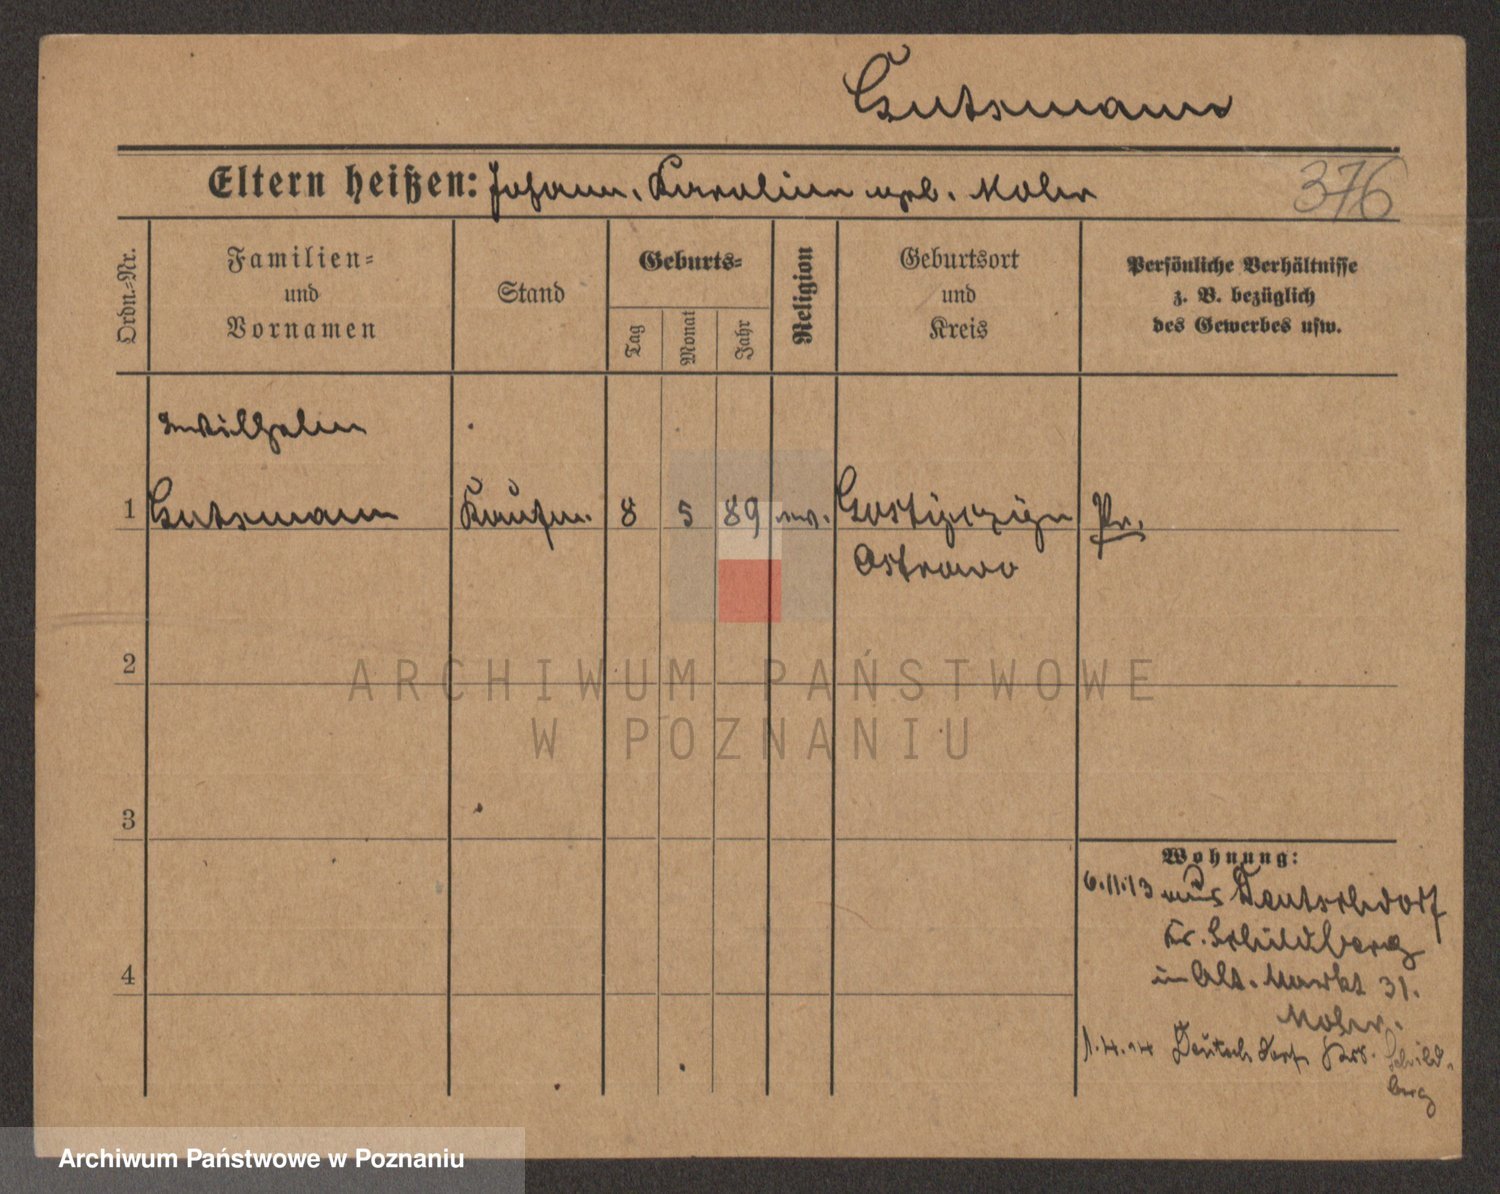 Gutsmann
Eltern heißen: Johann, Karoline geb. Mohr
376
Ordn.-Nr.
Familien-
und
Vornamen
Stand
Geburts-
Tag
Monat
Jahr
Religion
Geburtsort
und
Kreis
Persönliche Verhältnisse
z. B. bezüglich
des Gewerbes usw.
Wilhelm
1 Gutsmann Kaufm. 8 5 89 ev. Pr.
Ostrowo
2
ARCHIWUM PAŃSTWOWE
W POZNANIU
3
Wohnung:
6.11.13 aus Deutschdorf
Kr. Schildberg
in Alt. Markt 31.
Mohr.
4
1.4.14 Deutschdorf Krs. Schild-
berg
Archiwum Państwowe w Poznaniu